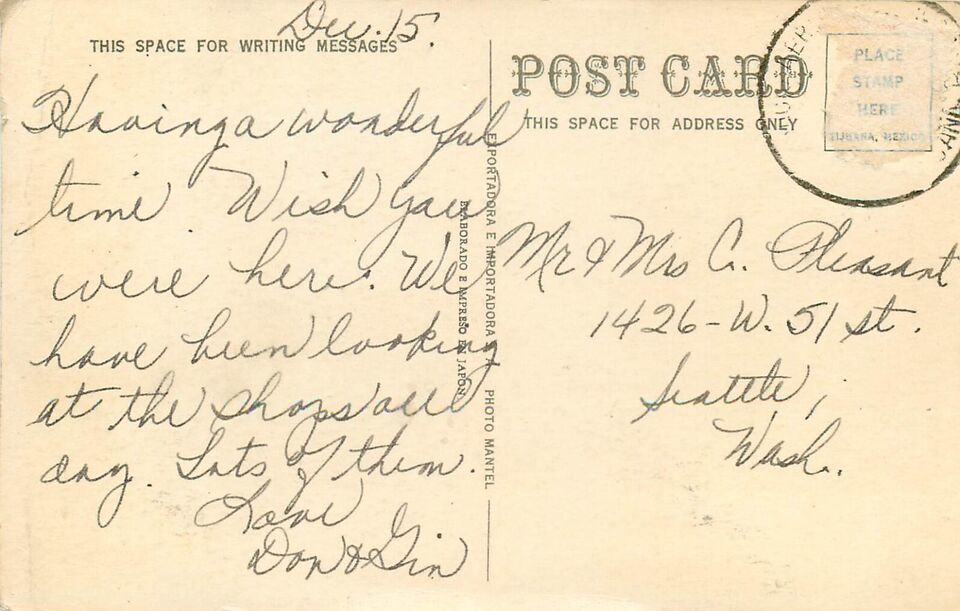 Dec. 15.
THIS SPACE FOR WRITING MESSAGES
Having a wonderful
time Wish you
were here. We
have been looking
at the shops all
day. Lots of them.
Love
Don & Gin
ELABORADO E IMPRESO EN JAPON
EXPORTADORA E IMPORTADORA PHOTO MANTEL
POST CARD
THIS SPACE FOR ADDRESS ONLY
PLACE
STAMP
HERE
TIJUANA, MEXICO
Mr & Mrs C. Pleasant
1426 - W. 51 st.
Seattle,
Wash.